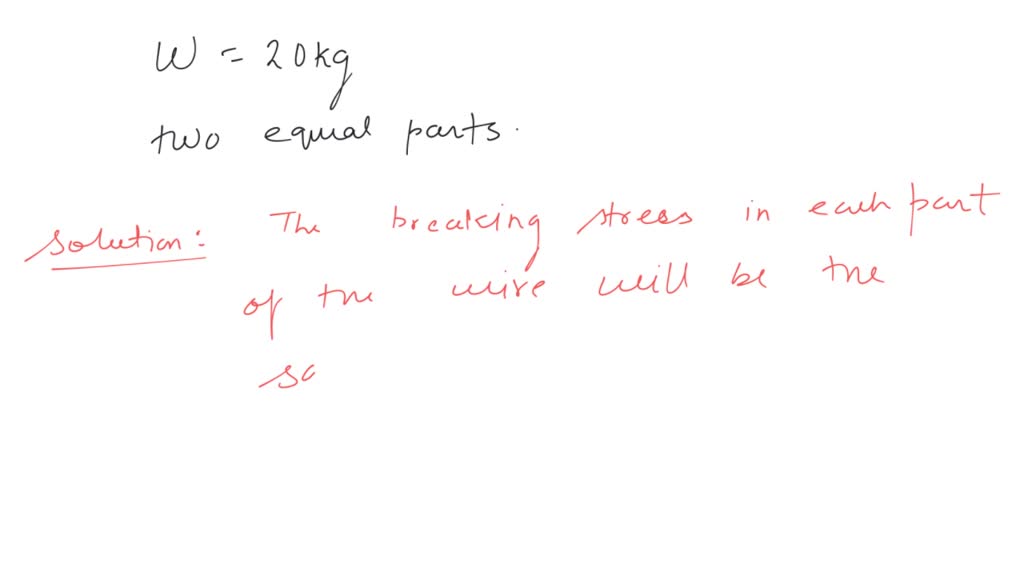 W = 20kg
two equal parts.
Solution: The breaking stress in each part
of the wire will be the
sa